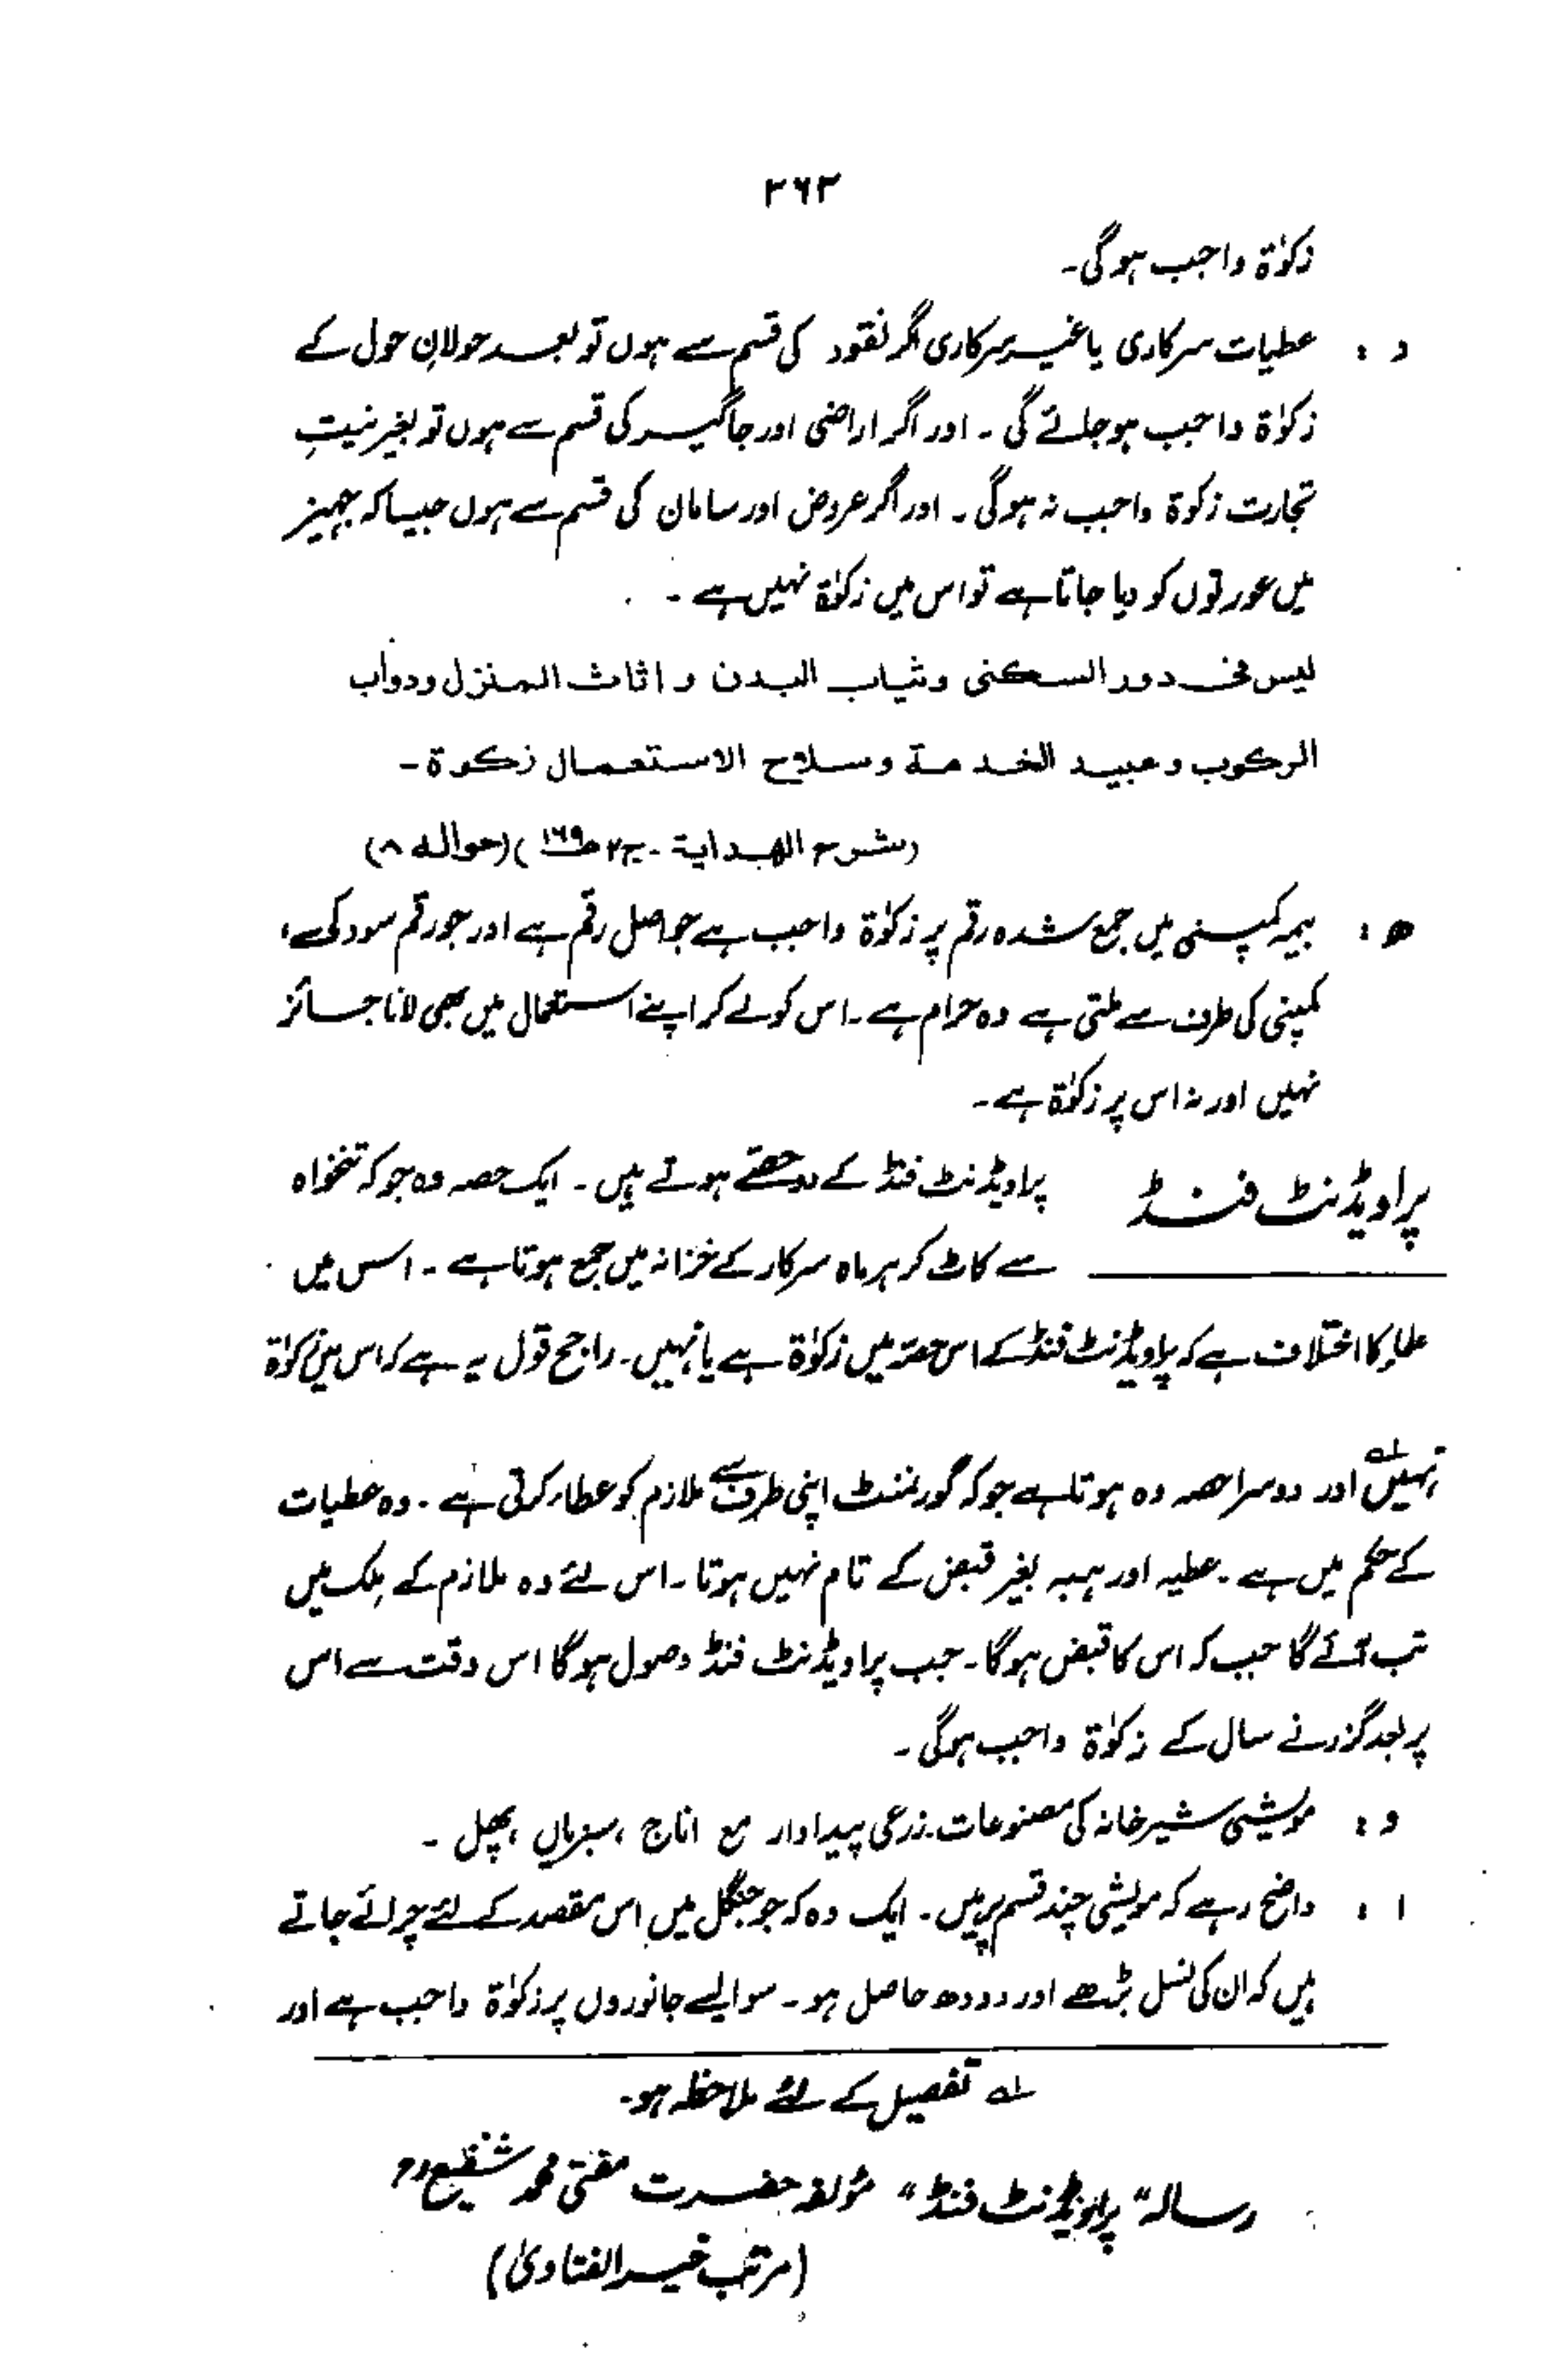 ۳۶۳
زکوٰۃ واجب ہوگی۔
د : عطیات سرکاری یا غیر سرکاری اگر نقود کی قسم سے ہوں تو بعد حولانِ حول کے
زکوٰۃ واجب ہوجائے گی ۔ اور اگر اراضی اور جاگیر کی قسم سے ہوں تو بغیر نیتِ
تجارت زکوٰۃ واجب نہ ہوگی ۔ اور اگر عروض اور سامان کی قسم سے ہوں جیسا کہ جہیز
میں عورتوں کو دیا جاتا ہے تو اس میں زکوٰۃ نہیں ہے ۔
لیس فی دور السکنی وثیاب البدن واثاث المنزل ودواب
الرکوب وعبید الخدمة وسلاح الاستعمال زکوة ۔
(شرح الھدایة ۔ ج۲ ص۱۶۹)(حوالہ ۸)
ھ : بیمہ کمپنی میں جمع شدہ رقم پر زکوٰۃ واجب ہے جو اصل رقم ہے اور جو رقم سود کی ہے،
کمپنی کی طرف سے ملتی ہے وہ حرام ہے ۔ اس کو لے کر اپنے استعمال میں بھی لانا جائز
نہیں اور نہ اس پر زکوٰۃ ہے ۔
پراویڈنٹ فنڈ پراویڈنٹ فنڈ کے دو حصّے ہوتے ہیں ۔ ایک حصہ وہ جو کہ تنخواہ
سے کاٹ کر ہر ماہ سرکار کے خزانہ میں جمع ہوتا ہے ۔ اس میں
علماء کا اختلاف ہے کہ پراویڈنٹ فنڈ کے اس حصّہ میں زکوٰۃ ہے یا نہیں ۔ راجح قول یہ ہے کہ اس میں زکوٰۃ
نہیں لہ اور دوسرا حصہ وہ ہوتا ہے جو کہ گورنمنٹ اپنی طرف سے ملازم کو عطاء کرتی ہے ۔ وہ عطیات
کے حکم میں ہے ۔ عطیہ اور ہبہ بغیر قبض کے تام نہیں ہوتا ۔ اس لئے وہ ملازم کے مِلک میں
تب آئے گا جب کہ اس کا قبض ہوگا ۔ جب پراویڈنٹ فنڈ وصول ہوگا اس وقت سے اس
پر بعد گزرنے سال کے زکوٰۃ واجب ہوگی ۔
و : مویشی شیر خانہ کی مصنوعات ۔ زرعی پیداوار مع اناج ، سبزیاں ، پھل ۔
۱ : واضح رہے کہ مویشی چند قسم پر ہیں ۔ ایک وہ کہ جو جنگل میں اس مقصد کے لئے چرائے جاتے
ہیں کہ ان کی نسل بڑھے اور دودھ حاصل ہو ۔ سو ایسے جانوروں پر زکوٰۃ واجب ہے اور
لہ تفصیل کے لئے ملاحظہ ہو ۔
رسالہ "پراویڈنٹ فنڈ" مؤلفہ حضرت مفتی محمد شفیع رح
(مرتب خیر الفتاویٰ)